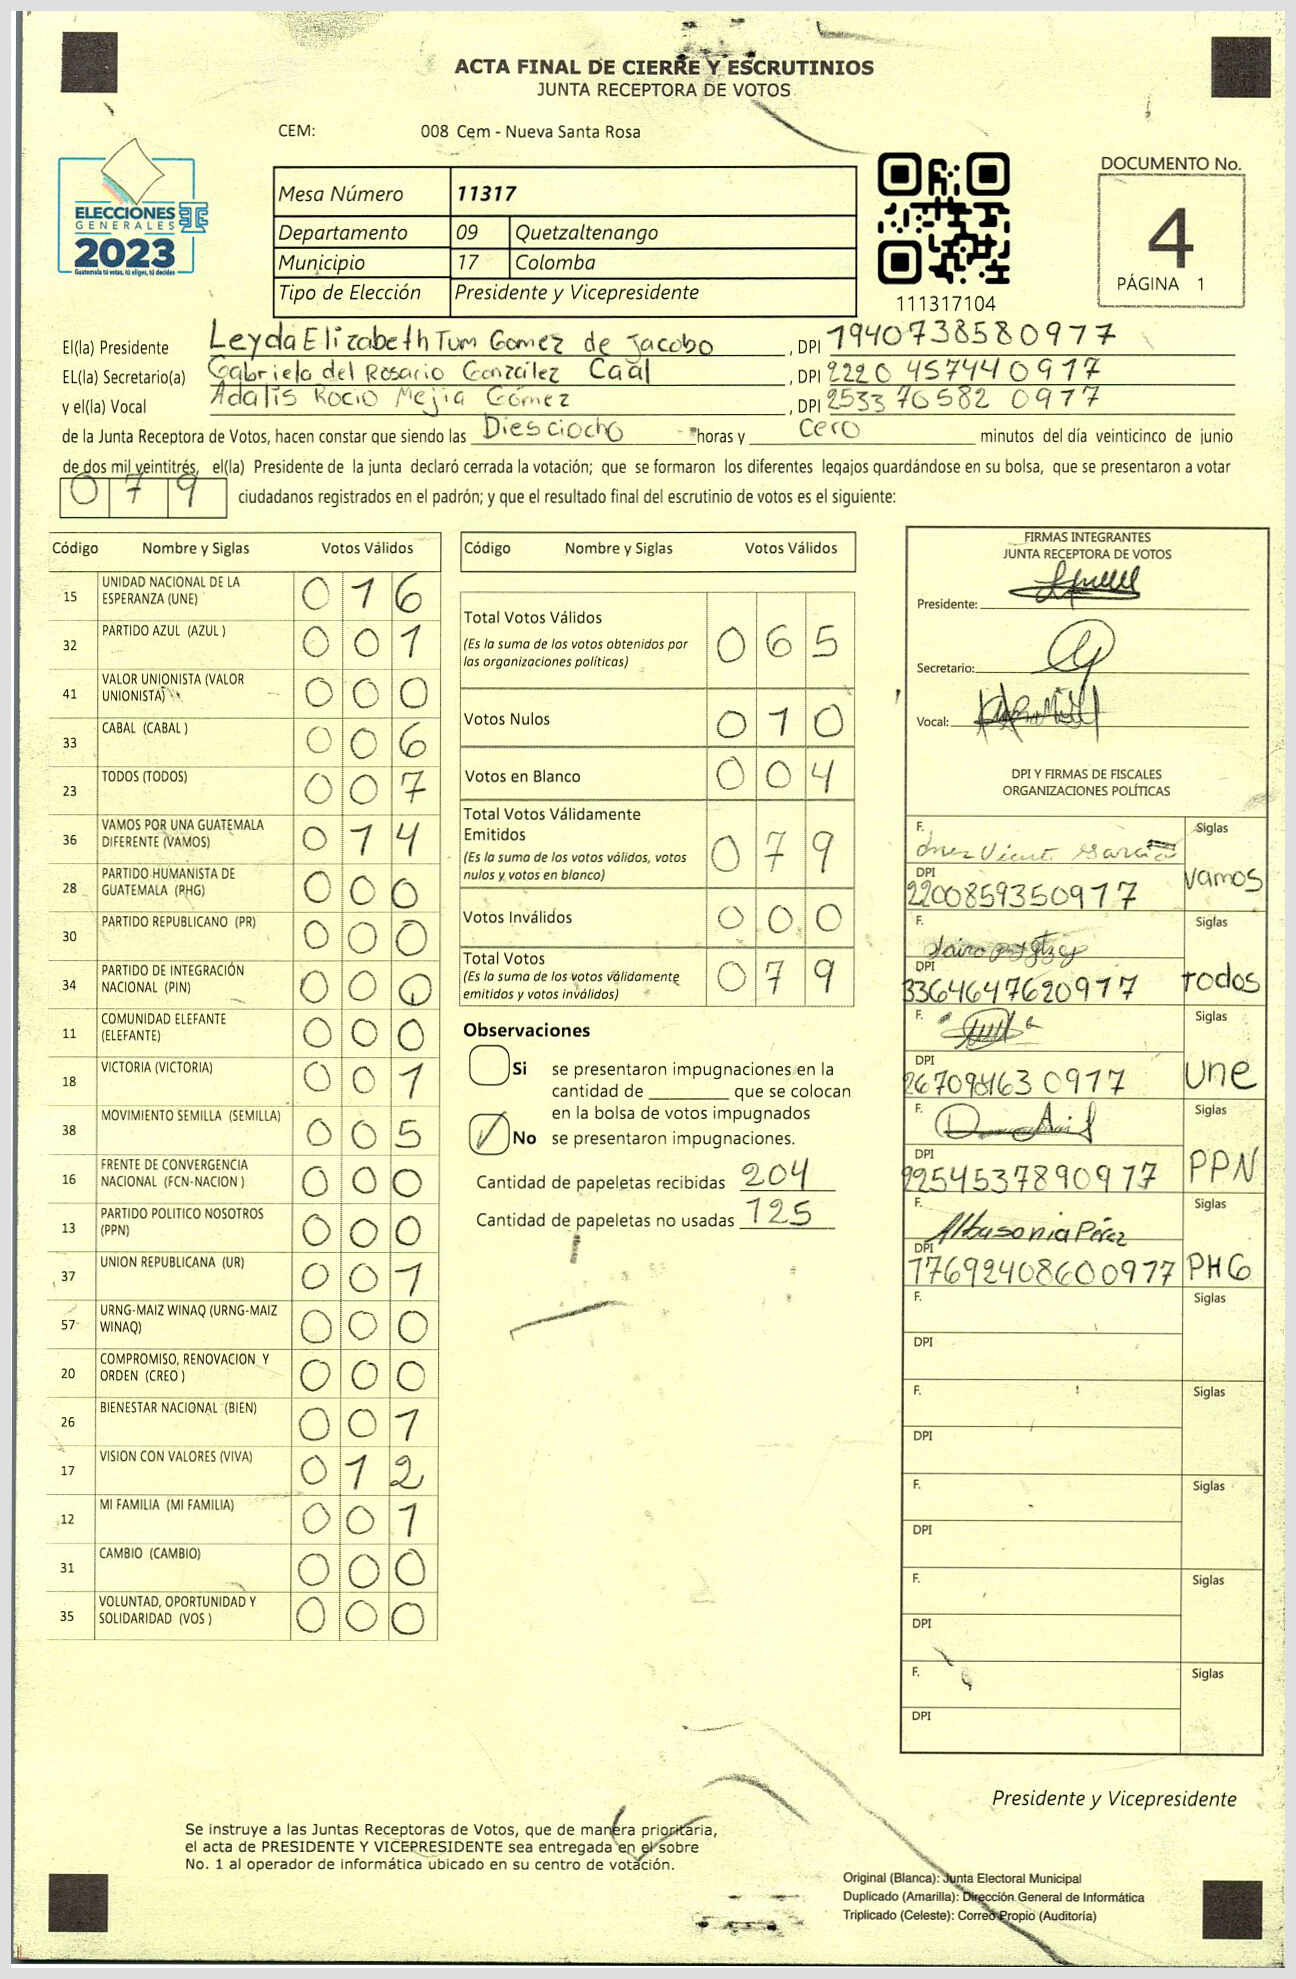 ACTA FINAL DE CIERRE Y ESCRUTINIOS
JUNTA RECEPTORA DE VOTOS
CEM: 008 Cem - Nueva Santa Rosa
ELECCIONES
GENERALES
2023
Guatemala tú votas, tú eliges, tú decides
Mesa Número 11317
Departamento 09 Quetzaltenango
Municipio 17 Colomba
Tipo de Elección Presidente y Vicepresidente
111317104
DOCUMENTO No.
4
PÁGINA 1
El(la) Presidente Leyda Elizabeth Tum Gomez de Jacobo , DPI 1940738580977
EL(la) Secretario(a) Gabriela del Rosario González Caal , DPI 2220 45744 0917
y el(la) Vocal Adalis Rocio Mejia Gómez , DPI 2533 70582 0977
de la Junta Receptora de Votos, hacen constar que siendo las Diesciocho horas y cero minutos del día veinticinco de junio
de dos mil veintitrés, el(la) Presidente de la junta declaró cerrada la votación; que se formaron los diferentes legajos guardándose en su bolsa, que se presentaron a votar
079 ciudadanos registrados en el padrón; y que el resultado final del escrutinio de votos es el siguiente:
Código Nombre y Siglas Votos Válidos
15 UNIDAD NACIONAL DE LA ESPERANZA (UNE) 016
32 PARTIDO AZUL (AZUL ) 001
41 VALOR UNIONISTA (VALOR UNIONISTA) 000
33 CABAL (CABAL ) 006
23 TODOS (TODOS) 007
36 VAMOS POR UNA GUATEMALA DIFERENTE (VAMOS) 014
28 PARTIDO HUMANISTA DE GUATEMALA (PHG) 000
30 PARTIDO REPUBLICANO (PR) 000
34 PARTIDO DE INTEGRACIÓN NACIONAL (PIN) 000
11 COMUNIDAD ELEFANTE (ELEFANTE) 000
18 VICTORIA (VICTORIA) 001
38 MOVIMIENTO SEMILLA (SEMILLA) 005
16 FRENTE DE CONVERGENCIA NACIONAL (FCN-NACION ) 000
13 PARTIDO POLITICO NOSOTROS (PPN) 000
37 UNION REPUBLICANA (UR) 001
57 URNG-MAIZ WINAQ (URNG-MAIZ WINAQ) 000
20 COMPROMISO, RENOVACION Y ORDEN (CREO ) 000
26 BIENESTAR NACIONAL (BIEN) 001
17 VISION CON VALORES (VIVA) 012
12 MI FAMILIA (MI FAMILIA) 001
31 CAMBIO (CAMBIO) 000
35 VOLUNTAD, OPORTUNIDAD Y SOLIDARIDAD (VOS ) 000
Código Nombre y Siglas Votos Válidos
Total Votos Válidos 065
(Es la suma de los votos obtenidos por
las organizaciones políticas)
Votos Nulos 010
Votos en Blanco 004
Total Votos Válidamente
Emitidos 079
(Es la suma de los votos válidos, votos
nulos y votos en blanco)
Votos Inválidos 000
Total Votos 079
(Es la suma de los votos válidamente
emitidos y votos inválidos)
Observaciones
Si se presentaron impugnaciones en la
cantidad de ________ que se colocan
en la bolsa de votos impugnados
No se presentaron impugnaciones.
Cantidad de papeletas recibidas 204
Cantidad de papeletas no usadas 125
FIRMAS INTEGRANTES
JUNTA RECEPTORA DE VOTOS
Presidente:
Secretario:
Vocal:
DPI Y FIRMAS DE FISCALES
ORGANIZACIONES POLÍTICAS
F. Siglas
DPI 2200859350917 Vamos
F. Siglas
DPI 3364647620917 Todos
F. Siglas
DPI 0977 Une
F. Siglas
DPI 2254537890977 PPN
F. Alba sonia Pérez Siglas
DPI 17692408600977 PHG
F. Siglas
DPI
F. Siglas
DPI
F. Siglas
DPI
F. Siglas
DPI
F. Siglas
DPI
Presidente y Vicepresidente
Se instruye a las Juntas Receptoras de Votos, que de manera prioritaria,
el acta de PRESIDENTE Y VICEPRESIDENTE sea entregada en el sobre
No. 1 al operador de informática ubicado en su centro de votación.
Original (Blanca): Junta Electoral Municipal
Duplicado (Amarilla): Dirección General de Informática
Triplicado (Celeste): Correo Propio (Auditoría)